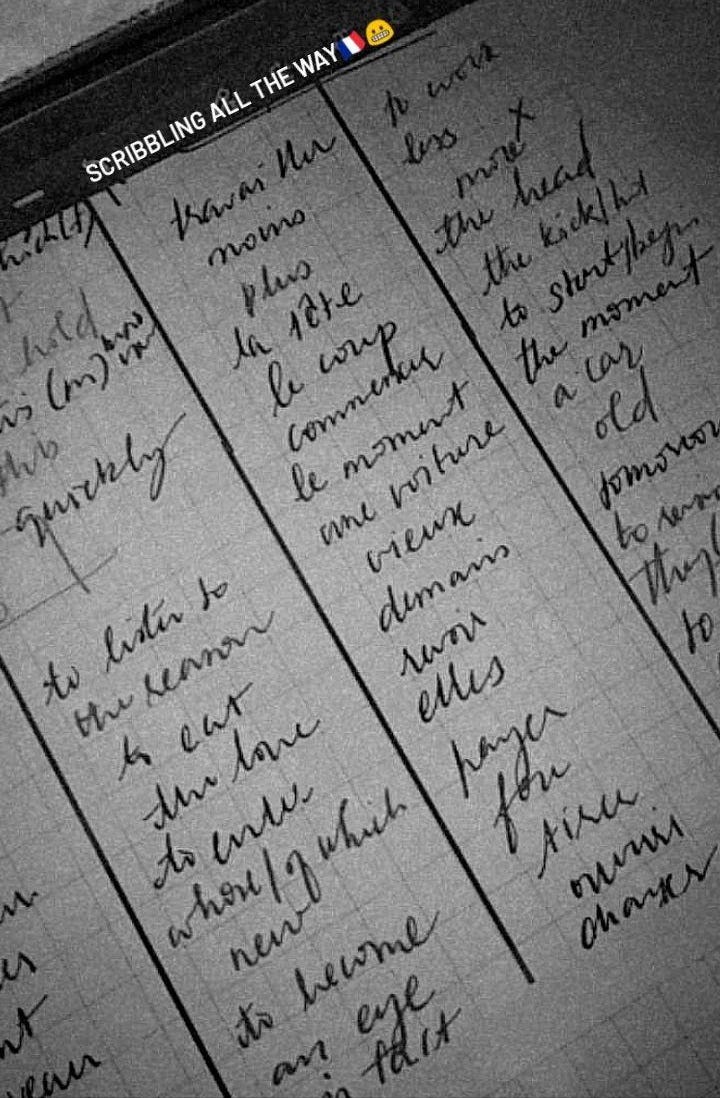 SCRIBBLING ALL THE WAY🇫🇷😬
hold
quickly
to listen to
the reason
to eat
the love
to enter
whose/of which
new
to become
an eye
in fact
travailler
moins
plus
la tête
le coup
commencer
le moment
une voiture
vieux
demain
revoir
elles
payer
fou
tirer
ouvrir
changer
to work
less
more
the head
the kick/hit
to start/begin
the moment
a car
old
tomorrow
to
they
to